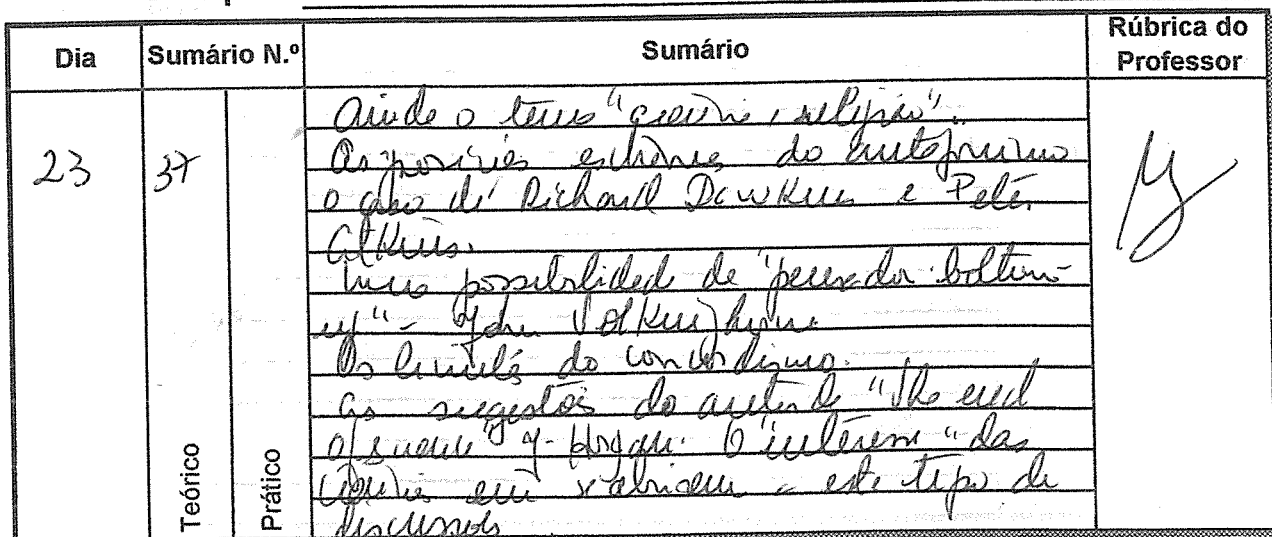 Dia Sumário N.º Sumário Rúbrica do Professor
23 37
Teórico Prático
Ainda o tema "ciência e religião".
As posições extremas do
o caso de Richard Dawkins e Peter
Atkins.
Uma possibilidade de "pensador bottom-
up" - John Polkinghorne.
Os limites do concordismo.
As sugestões do autor de "The end
of science" J. Horgan. O "interesse" das
ciências em este tipo de
discussões.